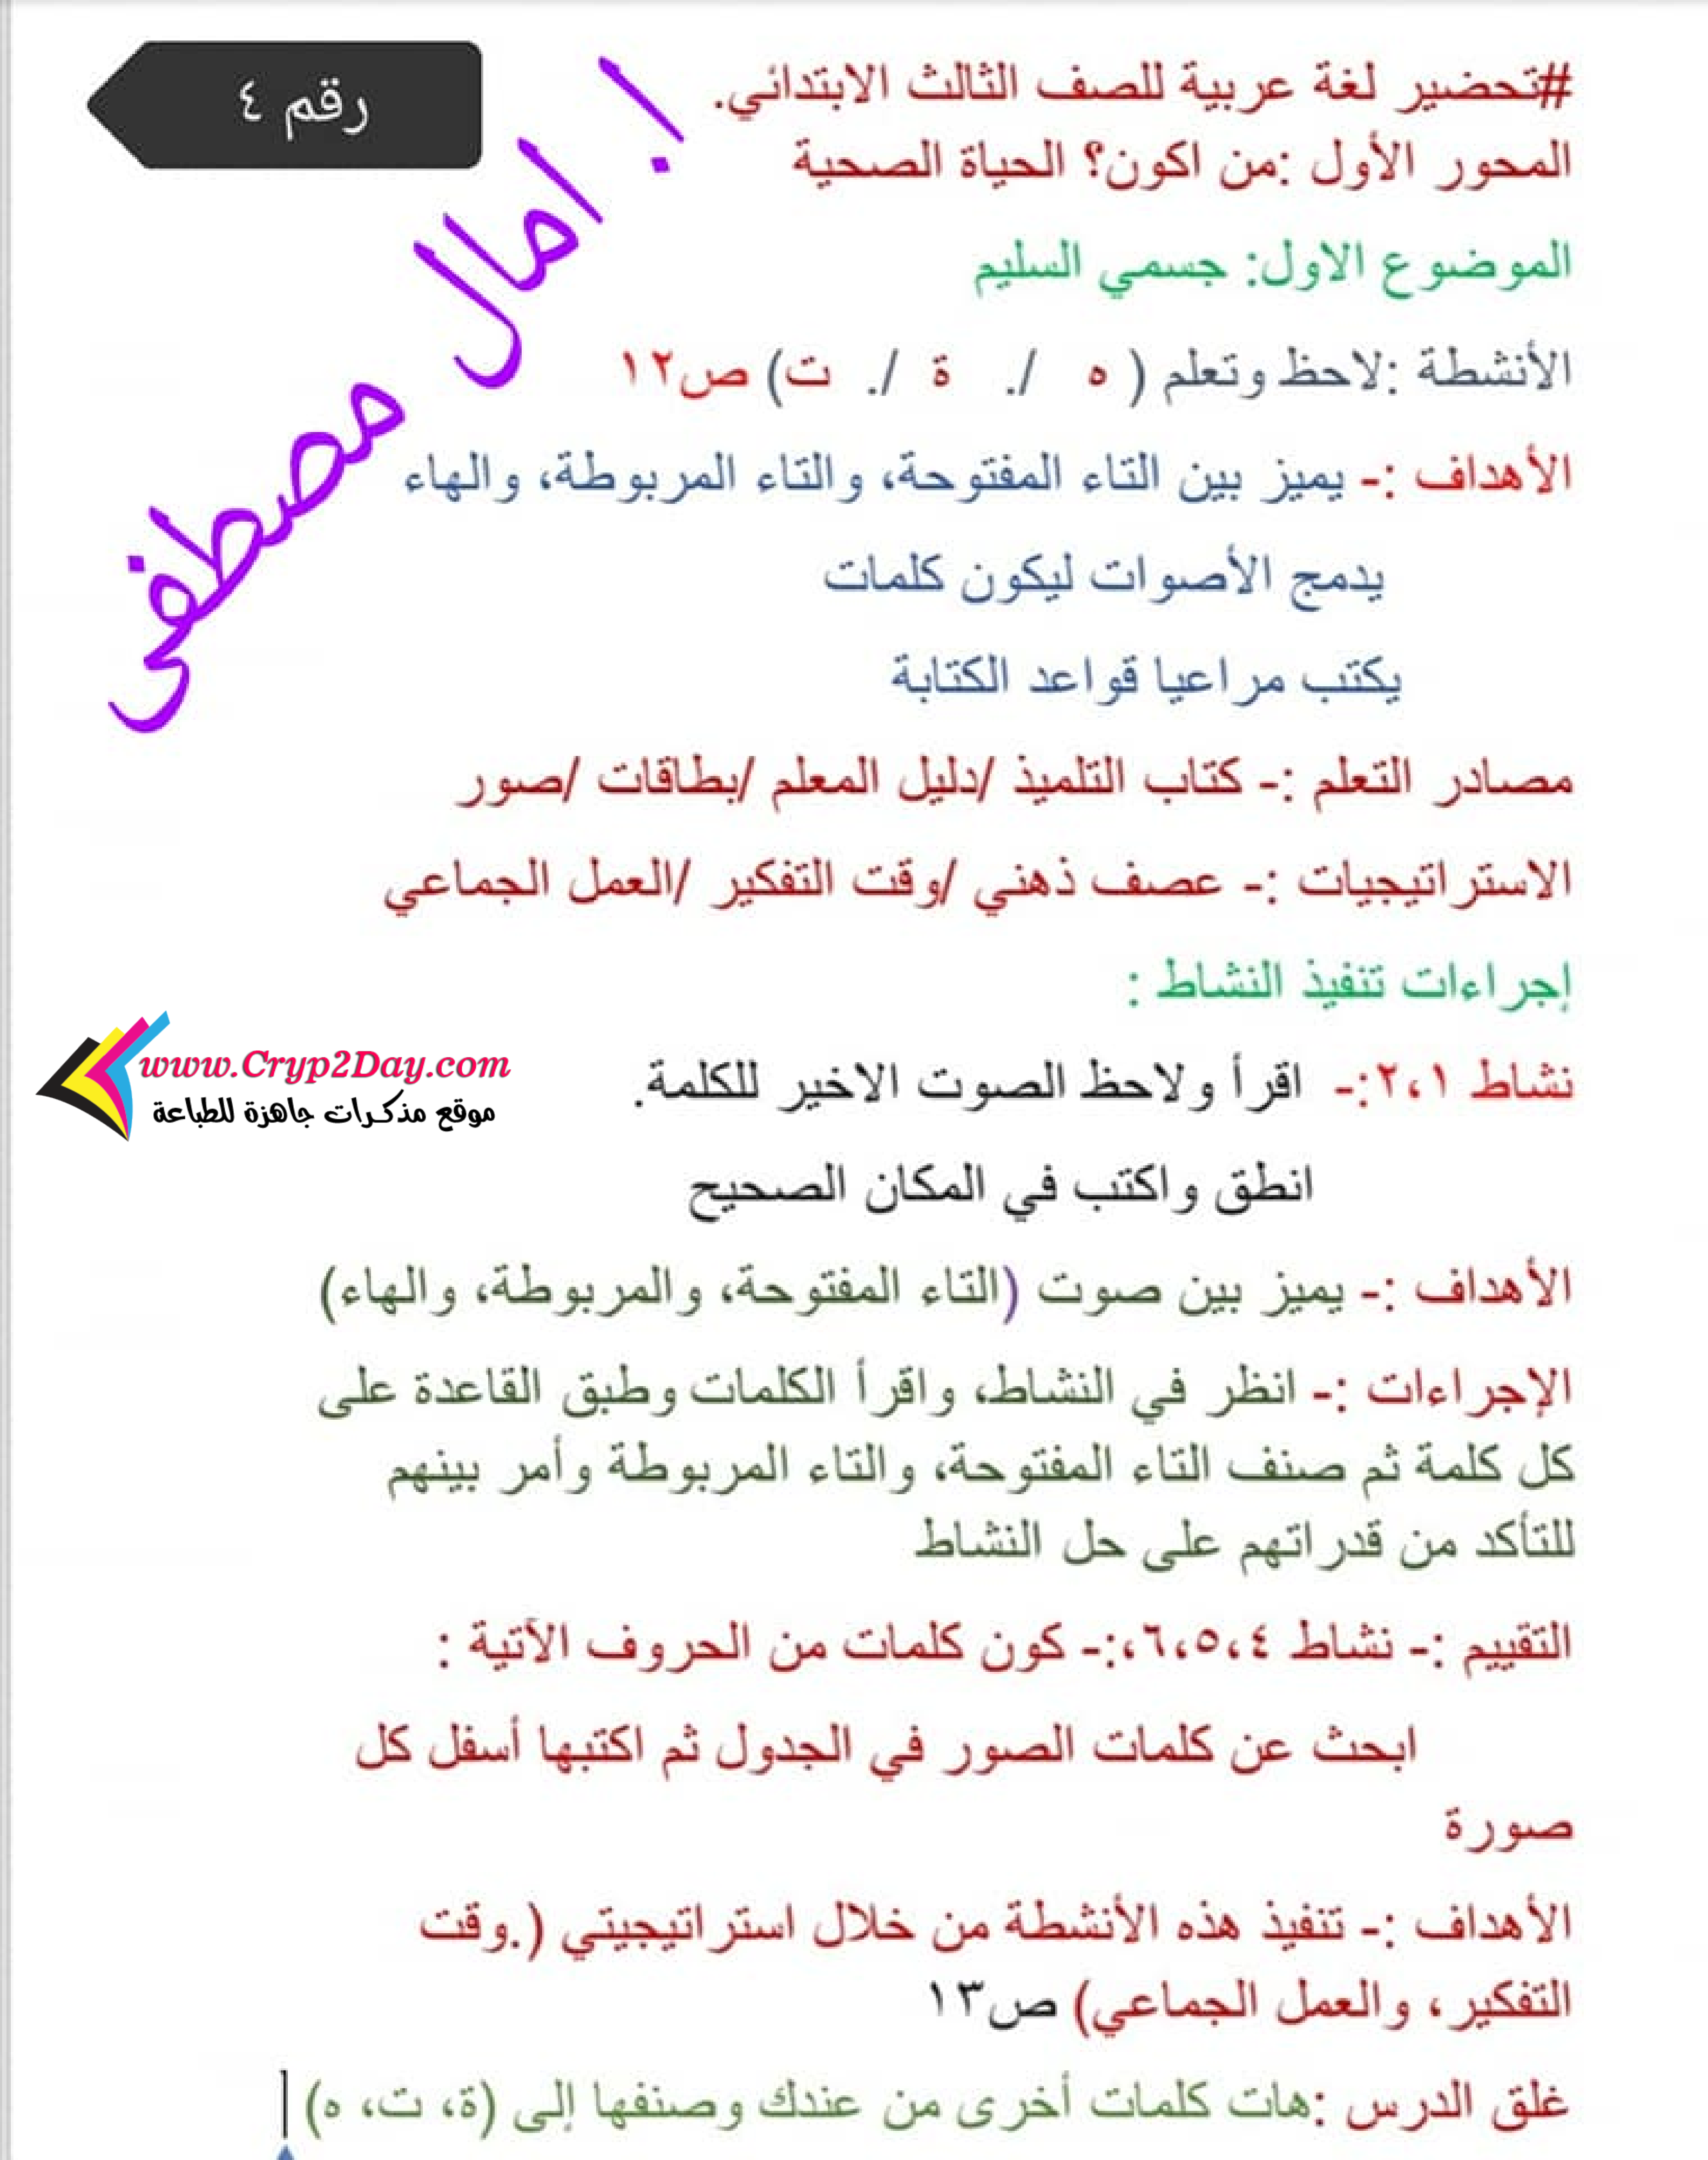 رقم ٤
#تحضير لغة عربية للصف الثالث الابتدائي.
المحور الأول :من اكون؟ الحياة الصحية
الموضوع الاول: جسمي السليم
الأنشطة :لاحظ وتعلم ( ه /. ة /. ت) ص١٢
الأهداف :- يميز بين التاء المفتوحة، والتاء المربوطة، والهاء
يدمج الأصوات ليكون كلمات
يكتب مراعيا قواعد الكتابة
مصادر التعلم :- كتاب التلميذ /دليل المعلم /بطاقات /صور
الاستراتيجيات :- عصف ذهني /وقت التفكير /العمل الجماعي
إجراءات تنفيذ النشاط :
نشاط ٢،١:- اقرأ ولاحظ الصوت الاخير للكلمة.
انطق واكتب في المكان الصحيح
الأهداف :- يميز بين صوت (التاء المفتوحة، والمربوطة، والهاء)
الإجراءات :- انظر في النشاط، واقرأ الكلمات وطبق القاعدة على
كل كلمة ثم صنف التاء المفتوحة، والتاء المربوطة وأمر بينهم
للتأكد من قدراتهم على حل النشاط
التقييم :- نشاط ٦،٥،٤،:- كون كلمات من الحروف الآتية :
ابحث عن كلمات الصور في الجدول ثم اكتبها أسفل كل
صورة
الأهداف :- تنفيذ هذه الأنشطة من خلال استراتيجيتي (.وقت
التفكير، والعمل الجماعي) ص١٣
غلق الدرس :هات كلمات أخرى من عندك وصنفها إلى (ة، ت، ه)
ا. امال مصطفى
www.Cryp2Day.com
موقع مذكرات جاهزة للطباعة